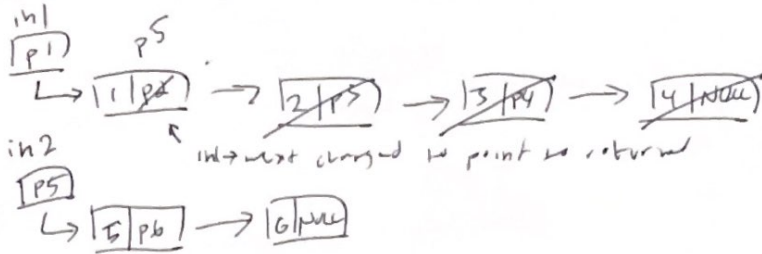 in1
p5
p1
1 p2 2 p3 3 p4 4 NULL
in1→next changed to point to returned
in2
p5
5 p6 6 NULL